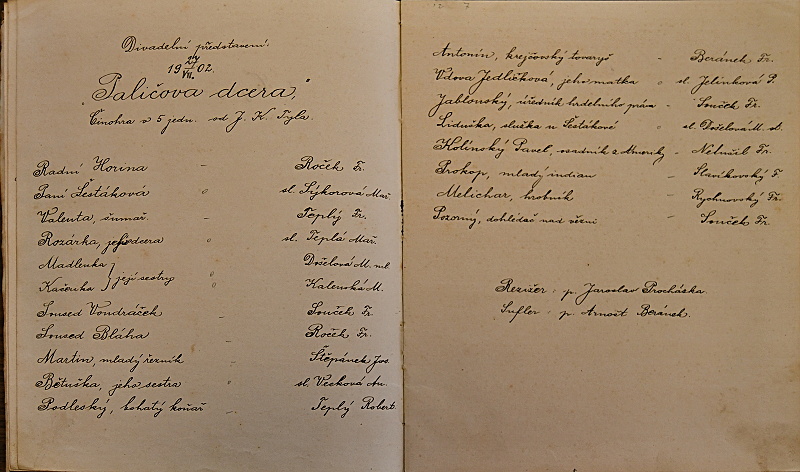 Divadelní představení.
19 27/VII. 02.
"Paličova dcera"
Činohra v 5 jedn. od J. K. Tyla.
Radní Horina - Roček Fr.
Paní Šestáková " sl. Sýkorová Mař.
Valenta, šumař. - Teplý Fr.
Rozárka, jeho dcera " sl. Teplá Mař.
Madlenka } Doželová M. ml.
Kačenka } její sestry " Kalenská M.
Soused Vondráček - Souček Fr.
Soused Bláha - Roček Fr.
Martin, mladý řezník - Štěpánek Jos.
Bětuška, jeho sestra " sl. Vecková An.
Podleský, bohatý koňař - Teplý Robert.
Antonín, krejčovský tovaryš - Beránek Fr.
Vdova Jedličková, jeho matka " sl. Jelínková P.
Jablonský, úředník hrdelního práva - Souček Fr.
Liduška, služka u Šestákové " sl. Doželová M. st.
Kolínský Pavel, osadník z Ameriky - Netušil Fr.
Prokop, mladý indian - Slavíkovský F.
Melichar, hrobník - Rychnovský Fr.
Pozorný, dohledač nad vězni - Souček Fr.
Režižer: p. Jaroslav Procháska.
Sufler: p. Arnošt Beránek.